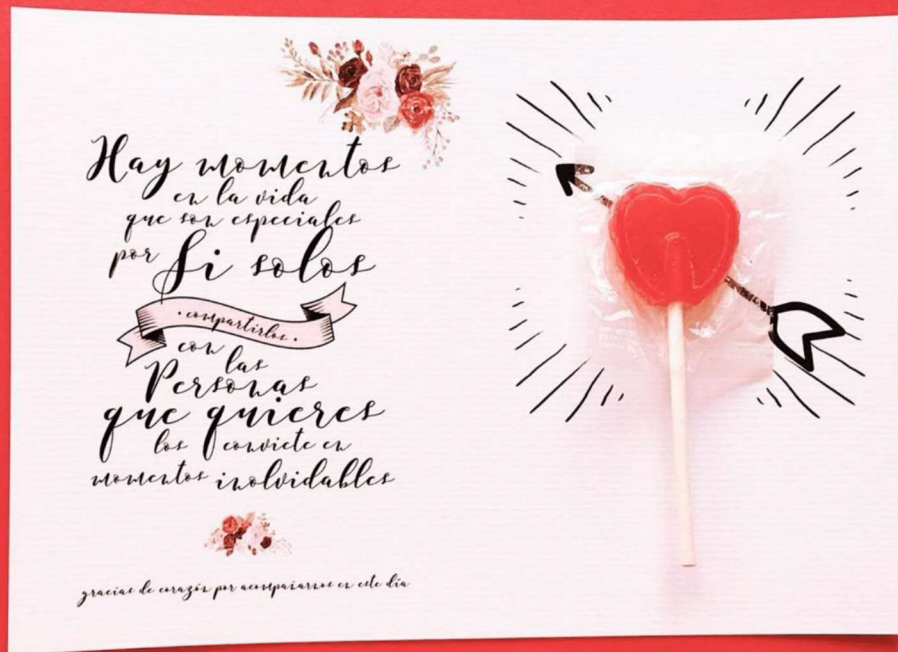 Hay momentos
en la vida
que son especiales
por Si solos
• compartirlos •
con
las
Personas
que quieres
los conviete en
momentos inolvidables
gracias de corazón por acompañarnos en este día